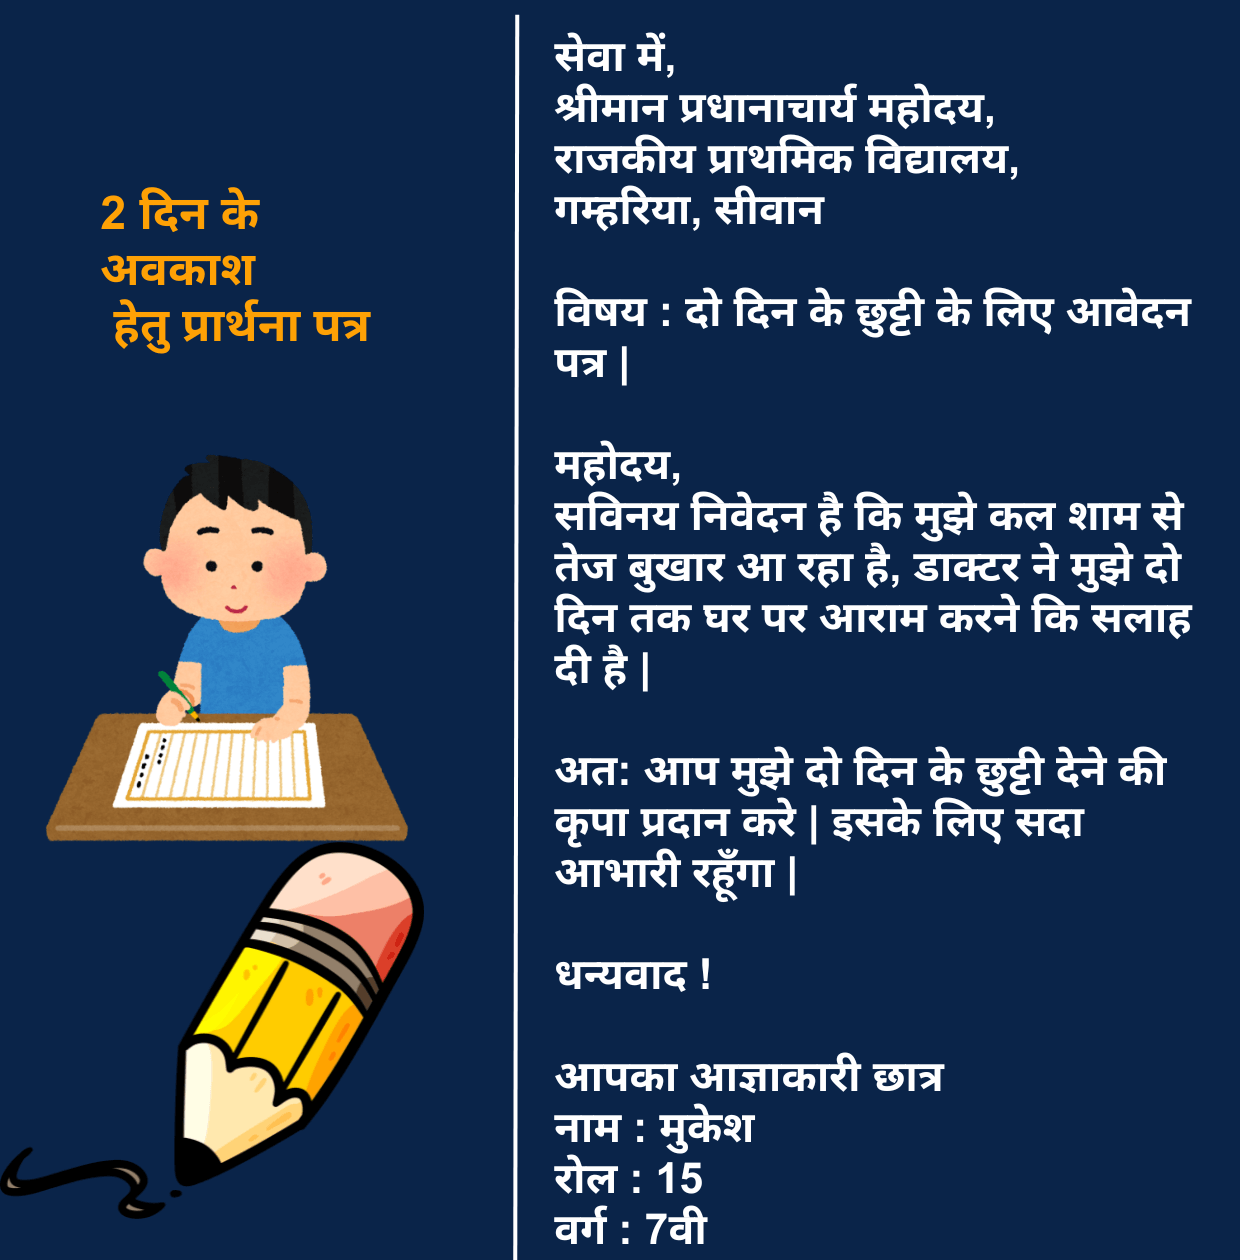 2 दिन के
अवकाश
हेतु प्रार्थना पत्र
सेवा में,
श्रीमान प्रधानाचार्य महोदय,
राजकीय प्राथमिक विद्यालय,
गम्हरिया, सीवान
विषय : दो दिन के छुट्टी के लिए आवेदन
पत्र |
महोदय,
सविनय निवेदन है कि मुझे कल शाम से
तेज बुखार आ रहा है, डाक्टर ने मुझे दो
दिन तक घर पर आराम करने कि सलाह
दी है |
अत: आप मुझे दो दिन के छुट्टी देने की
कृपा प्रदान करे | इसके लिए सदा
आभारी रहूँगा |
धन्यवाद !
आपका आज्ञाकारी छात्र
नाम : मुकेश
रोल : 15
वर्ग : 7वी